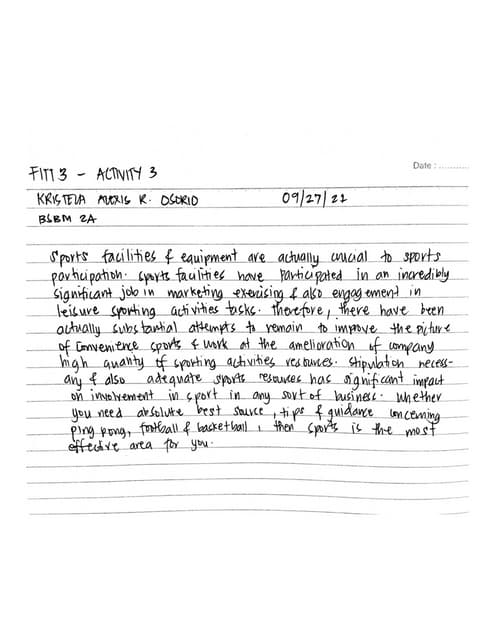 Date : ...........
FITT 3 - ACTIVITY 3
KRISTELA ALEXIS R. OSORIO 09/27/21
BSBM 2A
Sports facilities & equipment are actually crucial to sports
participation. Sports facilities have participated in an incredibly
significant job in marketing exercising & also engagement in
leisure sporting activities tasks. therefore, there have been
actually substantial attempts to remain to improve the picture
of Convenience sports & work at the amelioration of company
high quality of sporting activities resources. Stipulation necess-
ary & also adequate sports resources has significant impact
on involvement in sport in any sort of business. Whether
you need absolute best source, tips & guidance concerning
ping pong, football & basketball, then sports is the most
effective area for you.